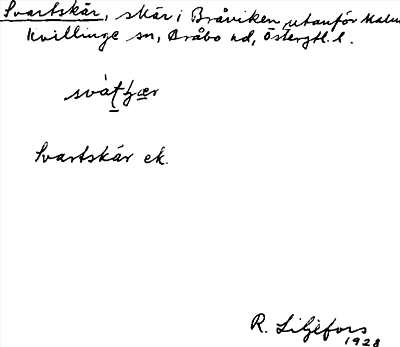 Svartskär, skär i Bråviken utanför Malm
Kvillinge sn, Bråbo hd, Östergtl. l.
Svartskär ek.
R. Liljefors
1928